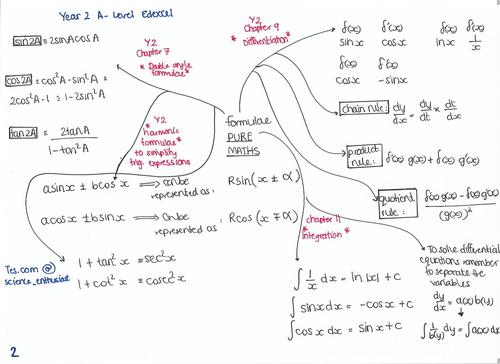 Year 2 A-Level Edexcel
sin2A ≡ 2sinAcosA
cos2A ≡ cos²A - sin²A ≡
2cos²A - 1 ≡ 1 - 2sin²A
tan2A ≡ 2tanA / 1 - tan²A
Y2
Chapter 7
* Double angle
formulae*
Y2
* harmonic
formulae*
to simplify
trig. expressions
formulae
PURE
MATHS
Y2
Chapter 9
* Differentiation *
f(x) f'(x) f(x) f'(x)
sinx cosx lnx 1/x
f(x) f'(x)
cosx -sinx
chain rule: dy/dx = dy/dt × dt/dx
product
rule: f'(x) g(x) + f(x) g'(x)
quotient
rule: f'(x)g(x) - f(x)g'(x) / (g(x))²
asinx ± bcosx ⟹ can be
represented as: Rsin(x ± α)
acosx ± bsinx ⟹ can be
represented as: Rcos(x ∓ α)
1 + tan²x ≡ sec²x
1 + cot²x ≡ cosec²x
Tes.com @
science_enthusiast
chapter 11
* Integration *
∫ 1/x dx = ln|x| + c
∫ sinx dx = -cosx + c
∫ cosx dx = sinx + c
To solve differential
equations remember
to separate the
variables
dy/dx = a(x)b(y)
∫ 1/b(y) dy = ∫ a(x) dx
2